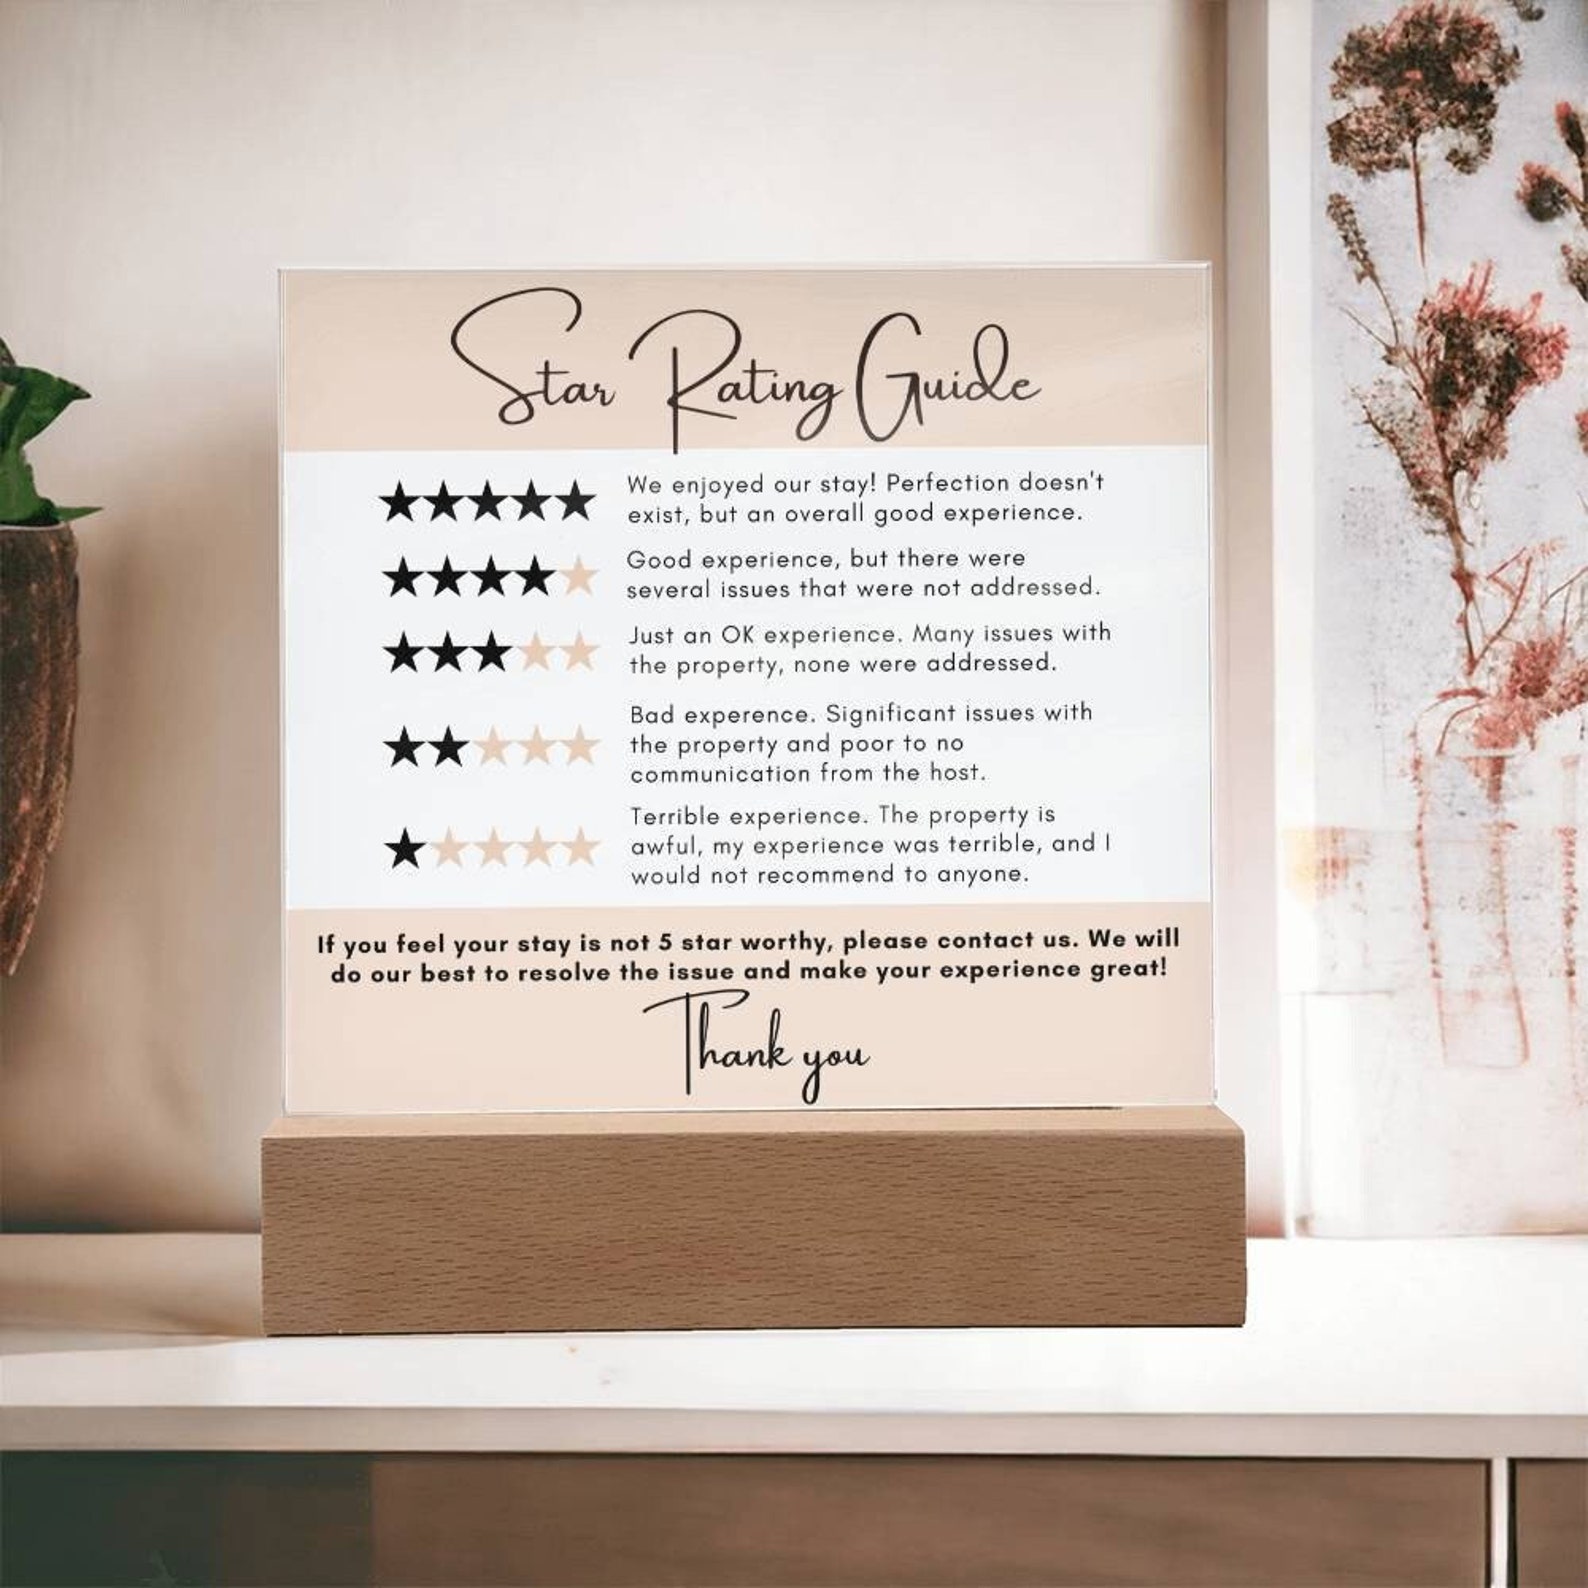 Star Rating Guide
We enjoyed our stay! Perfection doesn't
exist, but an overall good experience.
Good experience, but there were
several issues that were not addressed.
Just an OK experience. Many issues with
the property, none were addressed.
Bad experence. Significant issues with
the property and poor to no
communication from the host.
Terrible experience. The property is
awful, my experience was terrible, and I
would not recommend to anyone.
If you feel your stay is not 5 star worthy, please contact us. We will
do our best to resolve the issue and make your experience great!
Thank you